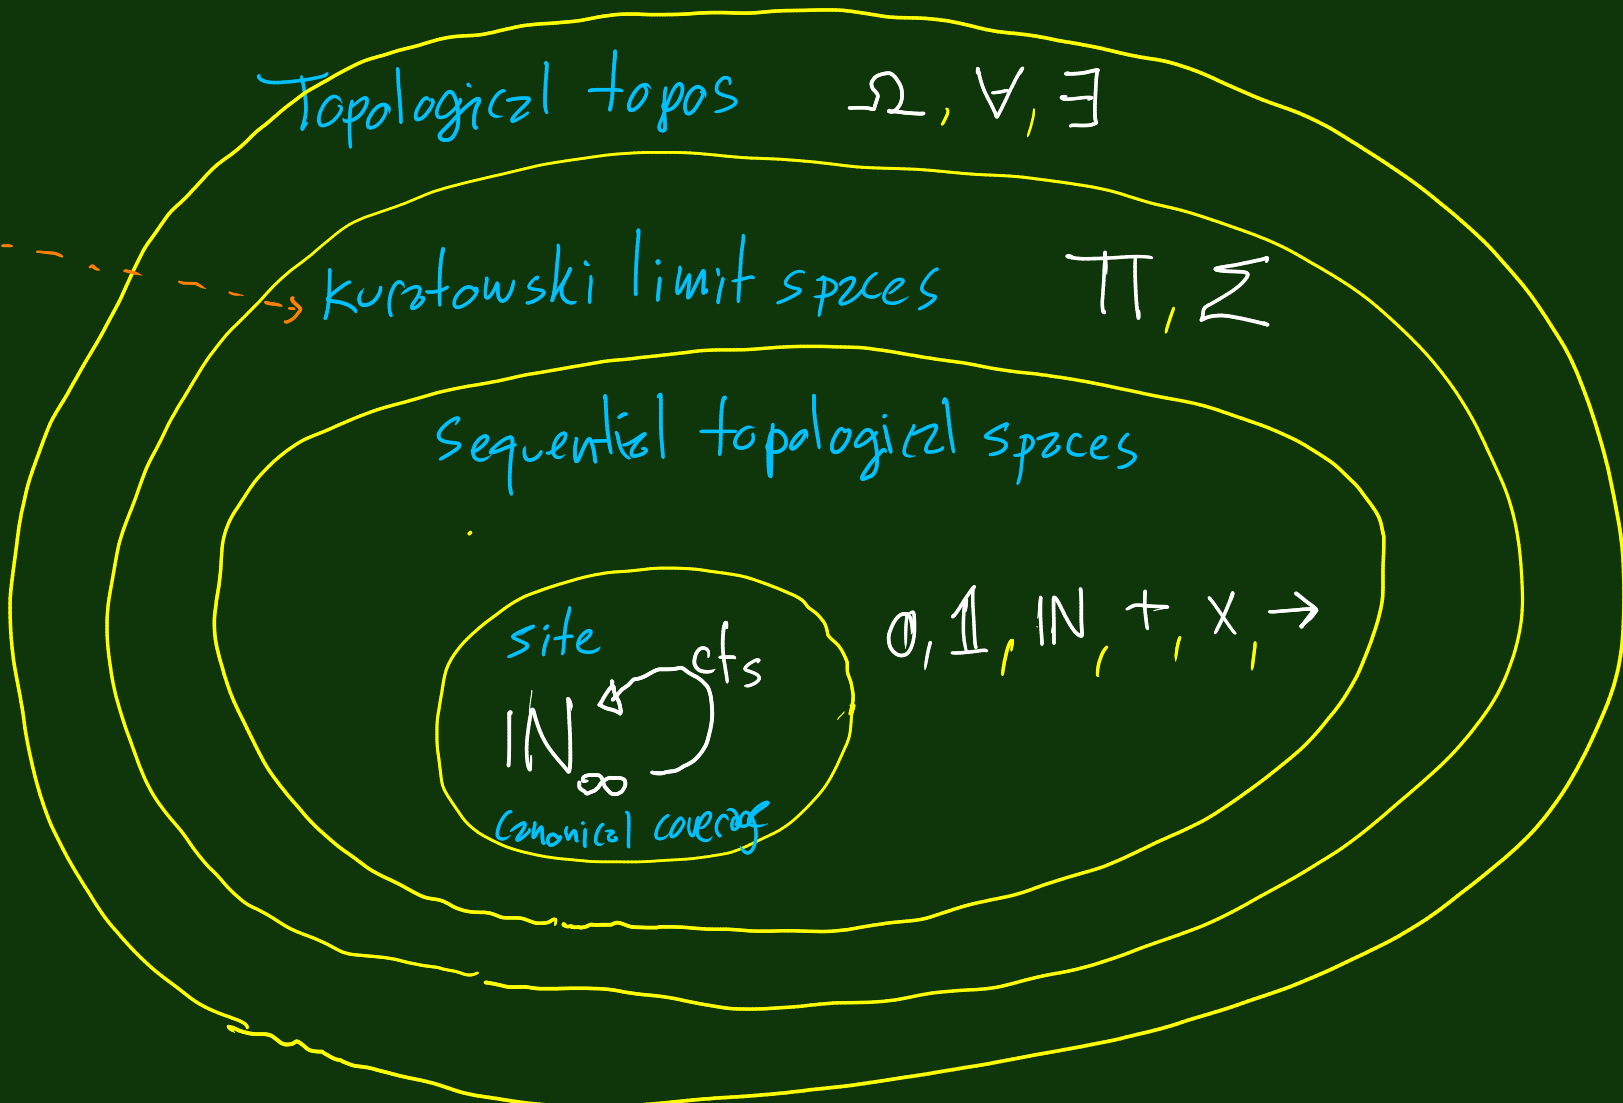 Topological topos Ω, ∀, ∃
Kuratowski limit spaces Π, Σ
Sequential topological spaces
site
0, 1, ℕ, +, ×, →
cts
ℕ∞
canonical coverage